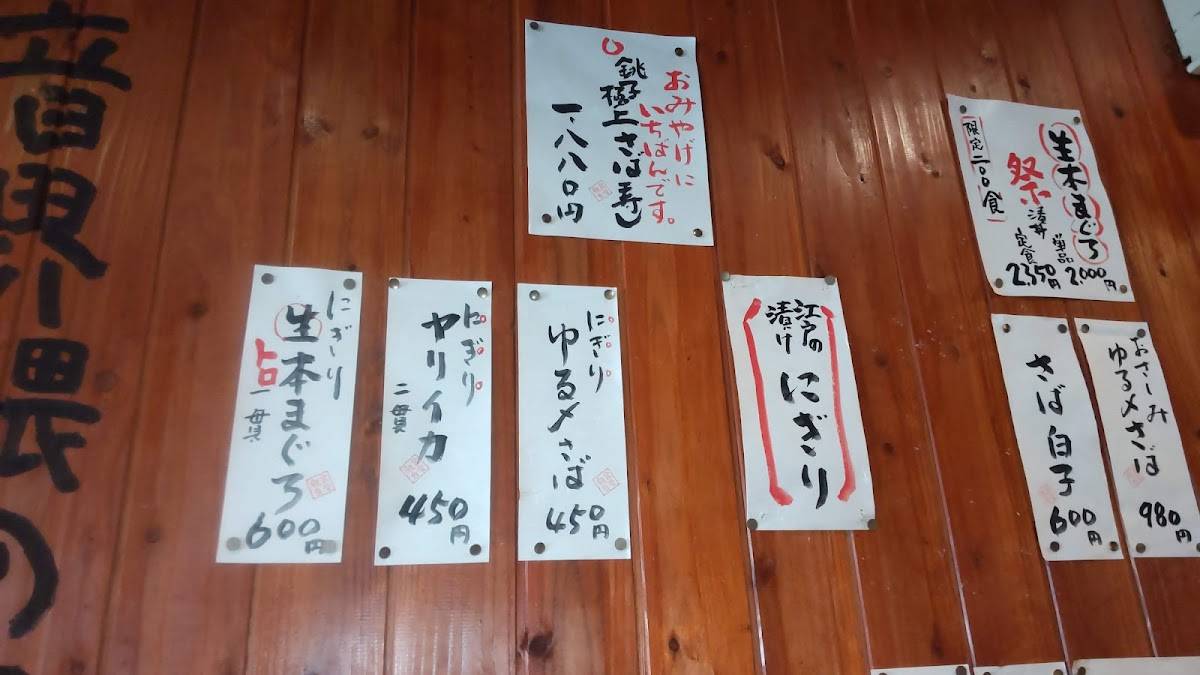 おみやげに
いちばんです。
銚子極上さば寿し
一、八八〇円
生本まぐろ
祭り
漬丼
単品
2,000円
定食
2,350円
限定二〇〇食
おさしみ
ゆる〆さば
980円
さば白子
600円
江戸の
漬け
にぎり
にぎり
ゆる〆さば
450円
にぎり
ヤリイカ
二貫
450円
にぎり
生本まぐろ
トロ
一貫
600円